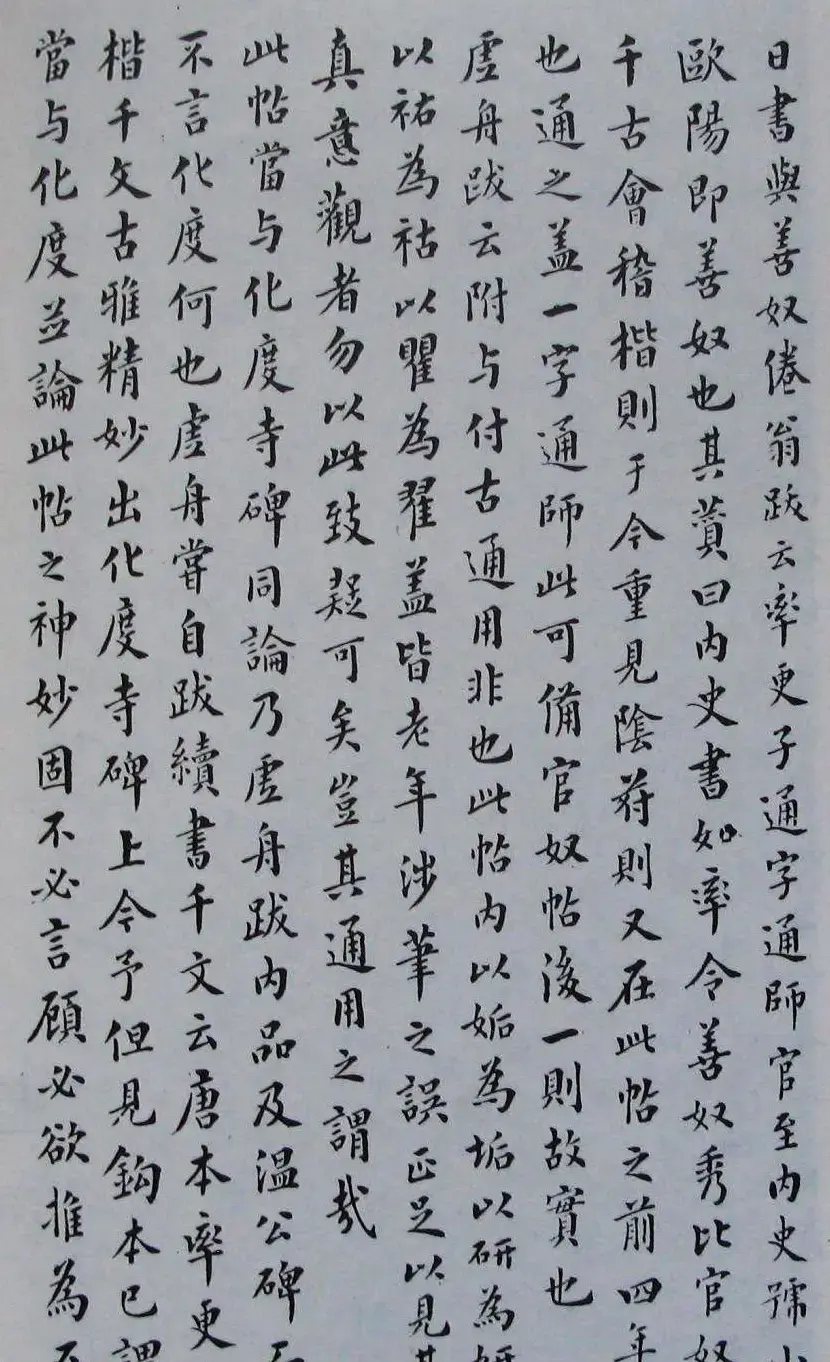 日書與善奴倦翁跋云率更子通字通師官至內史號小
歐陽即善奴也其贊曰內史書如率令善奴秀比官奴
千古會稽楷則于今重見陰符則又在此帖之前四年
也通之蓋一字通師此可備官奴帖後一則故實也
虛舟跋云附与付古通用非也此帖內以姤為垢以研為妍
以祐為祜以瞿為翟蓋皆老年涉筆之誤正足以見其
真意觀者勿以此致疑可矣豈其通用之謂哉
此帖當与化度寺碑同論乃虛舟跋內品及温公碑而
不言化度何也虛舟嘗自跋續書千文云唐本率更
楷千文古雅精妙出化度寺碑上今予但見鈎本已謂
當与化度並論此帖之神妙固不必言顧必欲推為